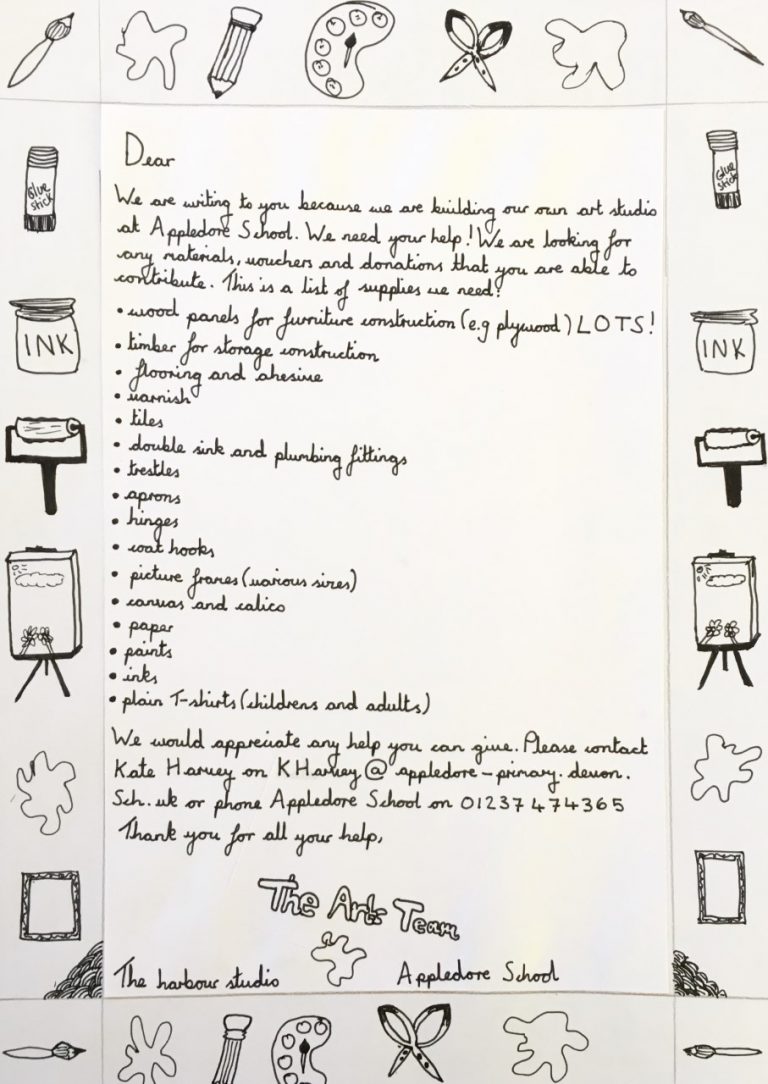 Dear
Glue stick
Glue stick
We are writing to you because we are building our own art studio
at Appledore School. We need your help! We are looking for
any materials, vouchers and donations that you are able to
contribute. This is a list of supplies we need:
• wood panels for furniture construction (e.g plywood) LOTS!
INK
INK
• timber for storage construction
• flooring and ahesive
• varnish
• tiles
• double sink and plumbing fittings
• trestles
• aprons
• hinges
• coat hooks
• picture frames (various sizes)
• canvas and calico
• paper
• paints
• inks
• plain T-shirts (childrens and adults)
We would appreciate any help you can give. Please contact
Kate Harvey on KHarvey@appledore-primary.devon.
Sch.uk or phone Appledore School on 01237 474365
Thank you for all your help,
The Arts Team
The harbour studio Appledore School